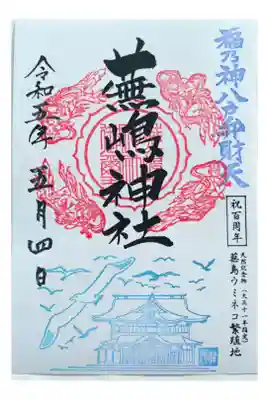 福乃神八方弁財天
祝百周年
天然記念物（大正十一年指定）
蕪島ウミネコ繁殖地
蕪嶋神社
令和五年 五月四日